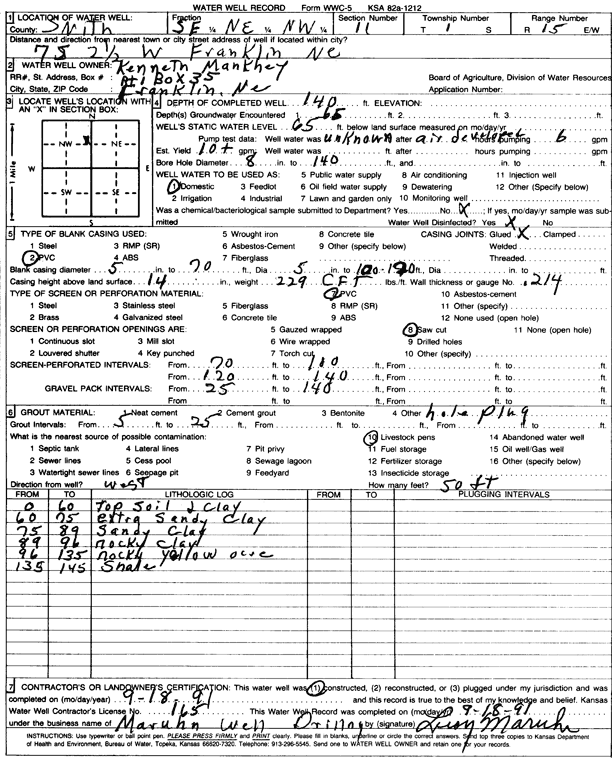 WATER WELL RECORD Form WWC-5 KSA 82a-1212
1 LOCATION OF WATER WELL: Fraction Section Number Township Number Range Number
County: Smith SE ¼ NE ¼ NW ¼ 11 T 1 S R 15 E/W
Distance and direction from nearest town or city street address of well if located within city?
7S 2½ W Franklin Ne
2 WATER WELL OWNER: Kenneth Mankhey
RR#, St. Address, Box # : Rt 1 Box 35 Board of Agriculture, Division of Water Resources
City, State, ZIP Code : Franklin, Ne Application Number:
3 LOCATE WELL'S LOCATION WITH AN "X" IN SECTION BOX:
N
NW NE
W E
SW SE
S
1 Mile
X
4 DEPTH OF COMPLETED WELL 140 ft. ELEVATION:
Depth(s) Groundwater Encountered 1. 65 ft. 2. ft. 3. ft.
WELL'S STATIC WATER LEVEL 65 ft. below land surface measured on mo/day/yr
Pump test data: Well water was unknown ft. after air developed hours pumping 6 gpm
Est. Yield 10+ gpm: Well water was ft. after hours pumping gpm
Bore Hole Diameter 8 in. to 140 ft., and in. to ft.
WELL WATER TO BE USED AS: 5 Public water supply 8 Air conditioning 11 Injection well
1 Domestic 3 Feedlot 6 Oil field water supply 9 Dewatering 12 Other (Specify below)
2 Irrigation 4 Industrial 7 Lawn and garden only 10 Monitoring well
Was a chemical/bacteriological sample submitted to Department? Yes No X ; If yes, mo/day/yr sample was submitted Water Well Disinfected? Yes X No
5 TYPE OF BLANK CASING USED: 5 Wrought iron 8 Concrete tile CASING JOINTS: Glued X Clamped
1 Steel 3 RMP (SR) 6 Asbestos-Cement 9 Other (specify below) Welded
2 PVC 4 ABS 7 Fiberglass Threaded
Blank casing diameter 5 in. to 70 ft., Dia 5 in. to 110-120 ft., Dia in. to ft.
Casing height above land surface 14 in., weight 229 CFT lbs./ft. Wall thickness or gauge No. .214
TYPE OF SCREEN OR PERFORATION MATERIAL: 7 PVC 10 Asbestos-cement
1 Steel 3 Stainless steel 5 Fiberglass 8 RMP (SR) 11 Other (specify)
2 Brass 4 Galvanized steel 6 Concrete tile 9 ABS 12 None used (open hole)
SCREEN OR PERFORATION OPENINGS ARE: 5 Gauzed wrapped 8 Saw cut 11 None (open hole)
1 Continuous slot 3 Mill slot 6 Wire wrapped 9 Drilled holes
2 Louvered shutter 4 Key punched 7 Torch cut 10 Other (specify)
SCREEN-PERFORATED INTERVALS: From 70 ft. to 110 ft., From ft. to ft.
From 120 ft. to 140 ft., From ft. to ft.
GRAVEL PACK INTERVALS: From 25 ft. to 140 ft., From ft. to ft.
From ft. to ft., From ft. to ft.
6 GROUT MATERIAL: 1 Neat cement 2 Cement grout 3 Bentonite 4 Other hole plug
Grout Intervals: From 5 ft. to 25 ft., From ft. to ft., From ft. to ft.
What is the nearest source of possible contamination: 10 Livestock pens 14 Abandoned water well
1 Septic tank 4 Lateral lines 7 Pit privy 11 Fuel storage 15 Oil well/Gas well
2 Sewer lines 5 Cess pool 8 Sewage lagoon 12 Fertilizer storage 16 Other (specify below)
3 Watertight sewer lines 6 Seepage pit 9 Feedyard 13 Insecticide storage
Direction from well? West How many feet? 50 ft
FROM TO LITHOLOGIC LOG FROM TO PLUGGING INTERVALS
0 60 Top Soil & Clay
60 75 extra Sandy Clay
75 89 Sandy Clay
89 96 rocky Clay
96 135 rocky yellow
135 145 Shale
7 CONTRACTOR'S OR LANDOWNER'S CERTIFICATION: This water well was (1) constructed, (2) reconstructed, or (3) plugged under my jurisdiction and was
completed on (mo/day/year) 9-18-91 and this record is true to the best of my knowledge and belief. Kansas
Water Well Contractor's License No. 165 This Water Well Record was completed on (mo/day/yr) 9-18-91
under the business name of Maruhn Well Drilling by (signature) Maruhn
INSTRUCTIONS: Use typewriter or ball point pen. PLEASE PRESS FIRMLY and PRINT clearly. Please fill in blanks, underline or circle the correct answers. Send top three copies to Kansas Department
of Health and Environment, Bureau of Water, Topeka, Kansas 66620-7320. Telephone: 913-296-5545. Send one to WATER WELL OWNER and retain one for your records.